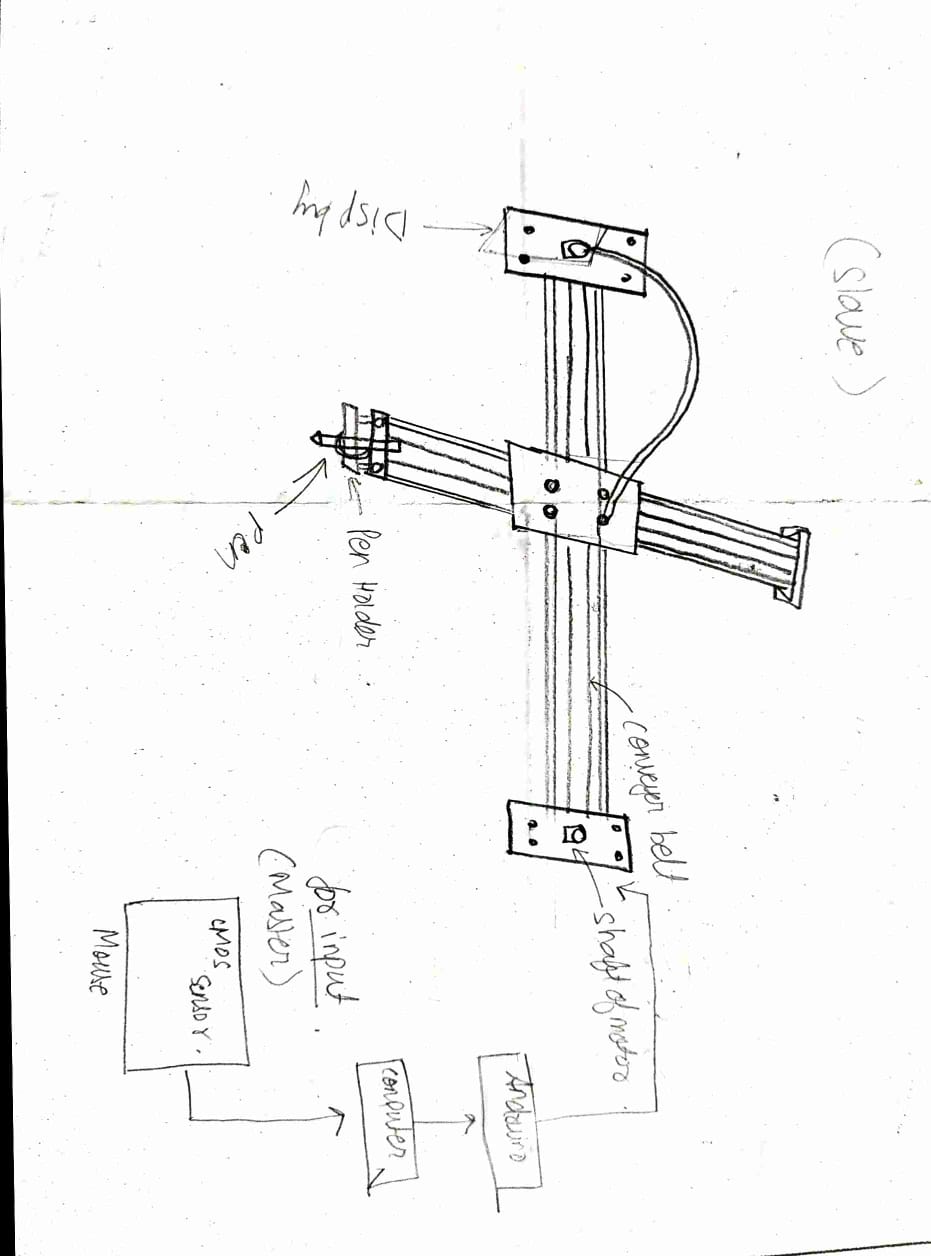 (Slave)
Display
Pen
Pen Holder.
conveyer belt
shaft of motors
for input.
(Master)
cmos
sensor.
Mouse
computer
Arduino